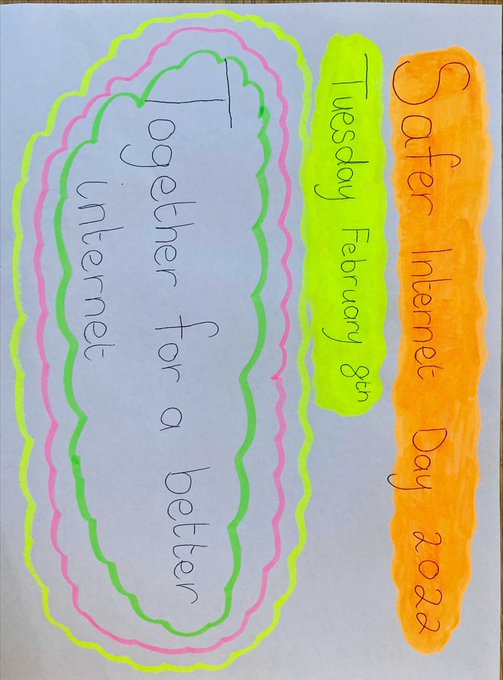 Safer Internet Day 2022
Tuesday February 8th
Together for a better
internet